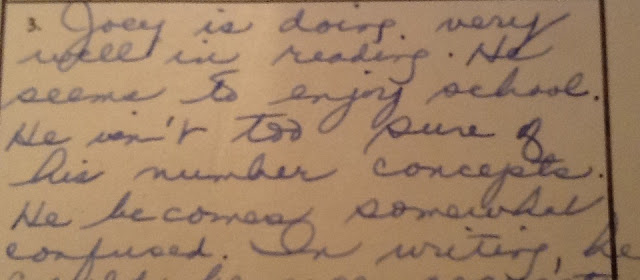 3. Joey is doing very
well in reading. He
seems to enjoy school.
He isn't too sure of
his number concepts.
He becomes somewhat
confused. In writing, he